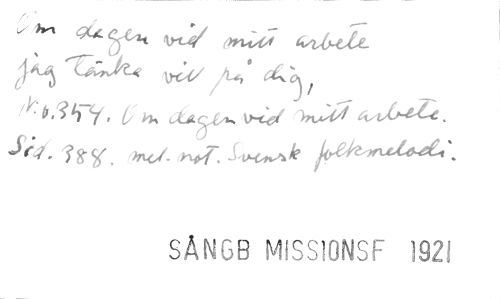 Om dagen vid mitt arbete
jag tänka vill på dig,
N:o.354. Om dagen vid mitt arbete.
Sid. 388. mel. not. Svensk folkmelodi.
SÅNGB MISSIONSF 1921